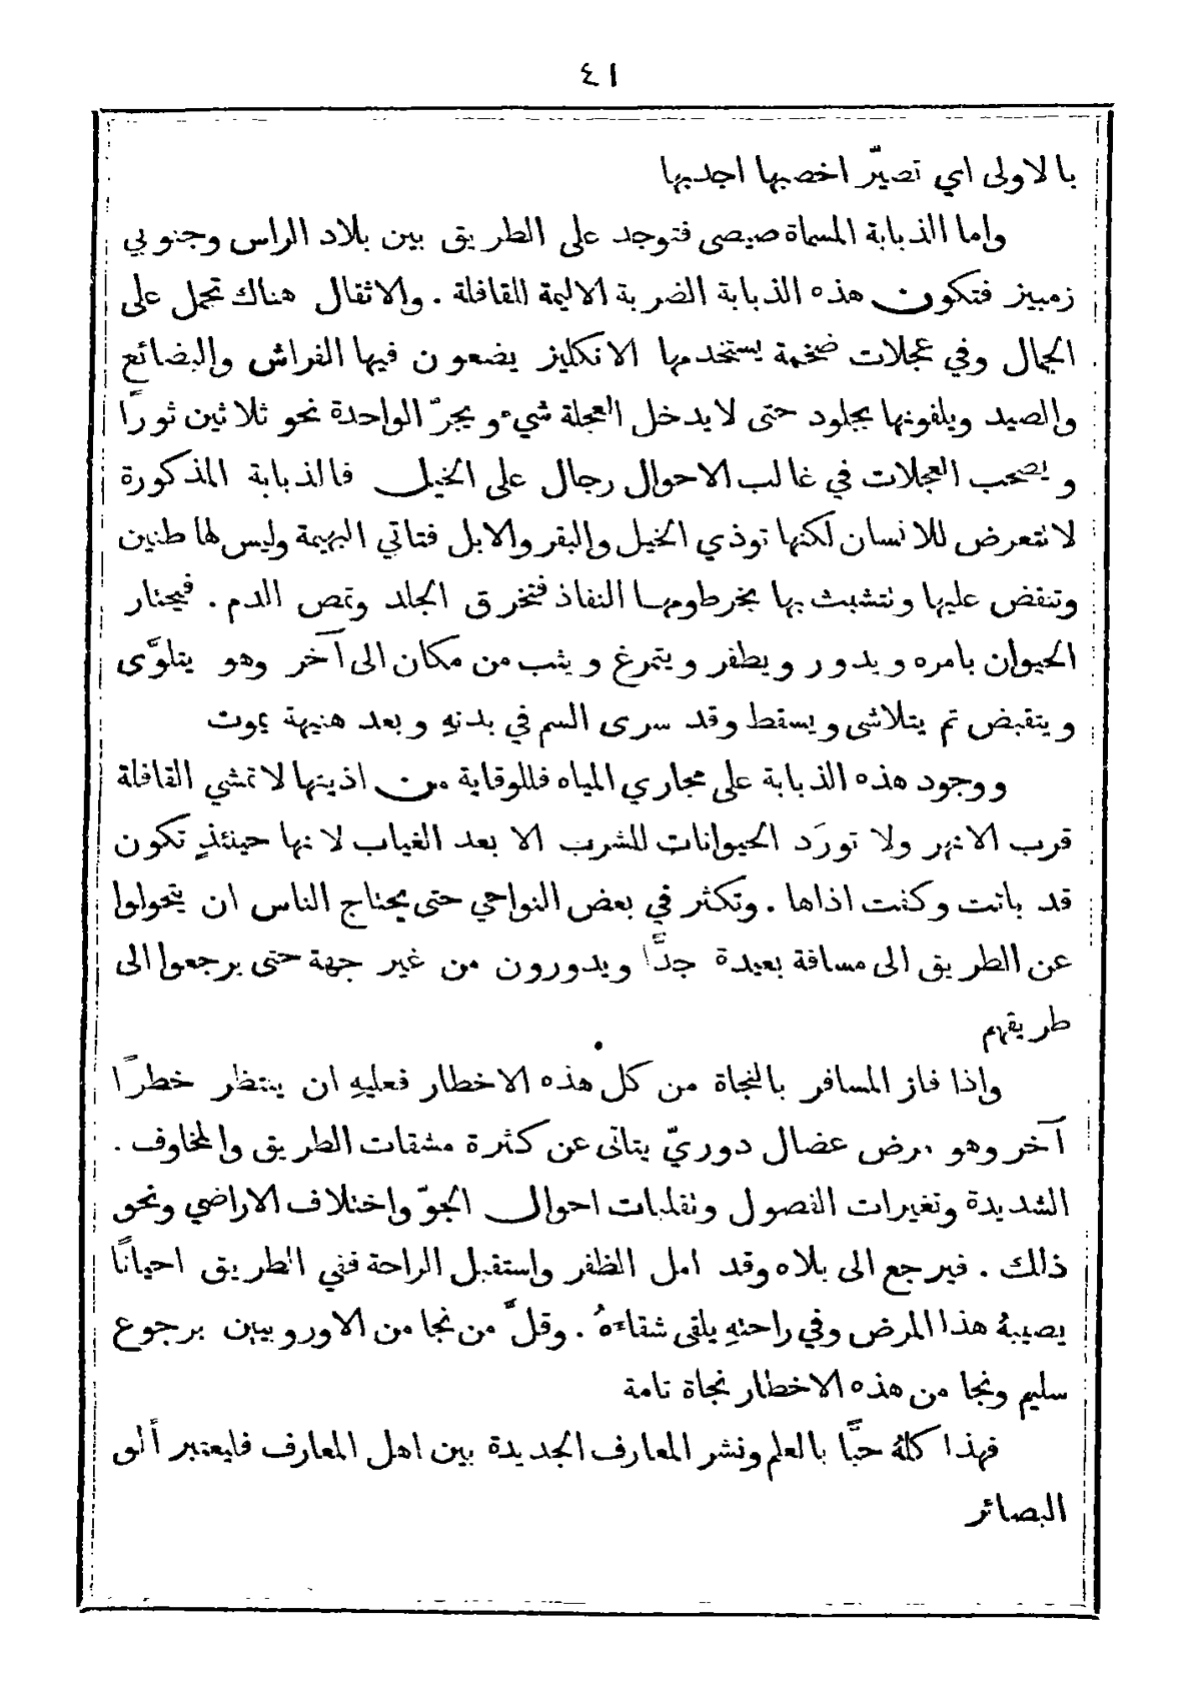 ٤١
بالاولى اي تصيّر اخصبها اجدبها
واما الذبابة المسماة صيصى فتوجد على الطريق بين بلاد الراس وجنوبي
زمبيز فتكون هذه الذبابة الضربة الاليمة للقافلة . والاثقال هناك تحمل على
الجمال وفي عجلات ضخمة يستخدمها الانكليز يضعون فيها الفراش والبضائع
والصيد ويلفونها بجلود حتى لا يدخل العجلة شيء ويجرّ الواحدة نحو ثلاثين ثورًا
ويصحب العجلات في غالب الاحوال رجال على الخيل فالذبابة المذكورة
لا نتعرض للانسان لكنها توذي الخيل والبقر والابل فتاتي البهيمة وليس لها طنين
وتنقض عليها ونتشبث بها بخرطومها النفاذ فتخرق الجلد وتمص الدم . فيحتار
الحيوان بامره ويدور ويطفر ويتمرغ ويثب من مكان الى آخر وهو يتلوَّى
ويتقبض ثم يتلاشى ويسقط وقد سرى السم في بدنهِ وبعد هنيهة يموت
ووجود هذه الذبابة على مجاري المياه فللوقاية من اذيتها لا تمشي القافلة
قرب الانهر ولا تورَد الحيوانات للشرب الا بعد الغياب لانها حينئذٍ تكون
قد باتت وكفت اذاها . وتكثر في بعض النواحي حتى يحتاج الناس ان يتحولوا
عن الطريق الى مسافة بعيدة جدًّا ويدورون من غير جهة حتى يرجعوا الى
طريقهم
واذا فاز المسافر بالنجاة من كل هذه الاخطار فعليهِ ان ينتظر خطرًا
آخر وهو مرض عضال دوريّ يتاتى عن كثرة مشقات الطريق والمخاوف .
الشديدة وتغيرات الفصول ونقلبات احوال الجوّ واختلاف الاراضي ونحو
ذلك . فيرجع الى بلاه وقد امل الظفر واستقبل الراحة ففي الطريق احيانًا
يصيبهُ هذا المرض وفي راحتهِ يلقى شقاءهُ . وقلَّ من نجا من الاوروبيين برجوع
سليم ونجا من هذه الاخطار نجاة تامة
فهذا كلهُ حبًّا بالعلم ونشر المعارف الجديدة بين اهل المعارف فليعتبر أُلو
البصائر